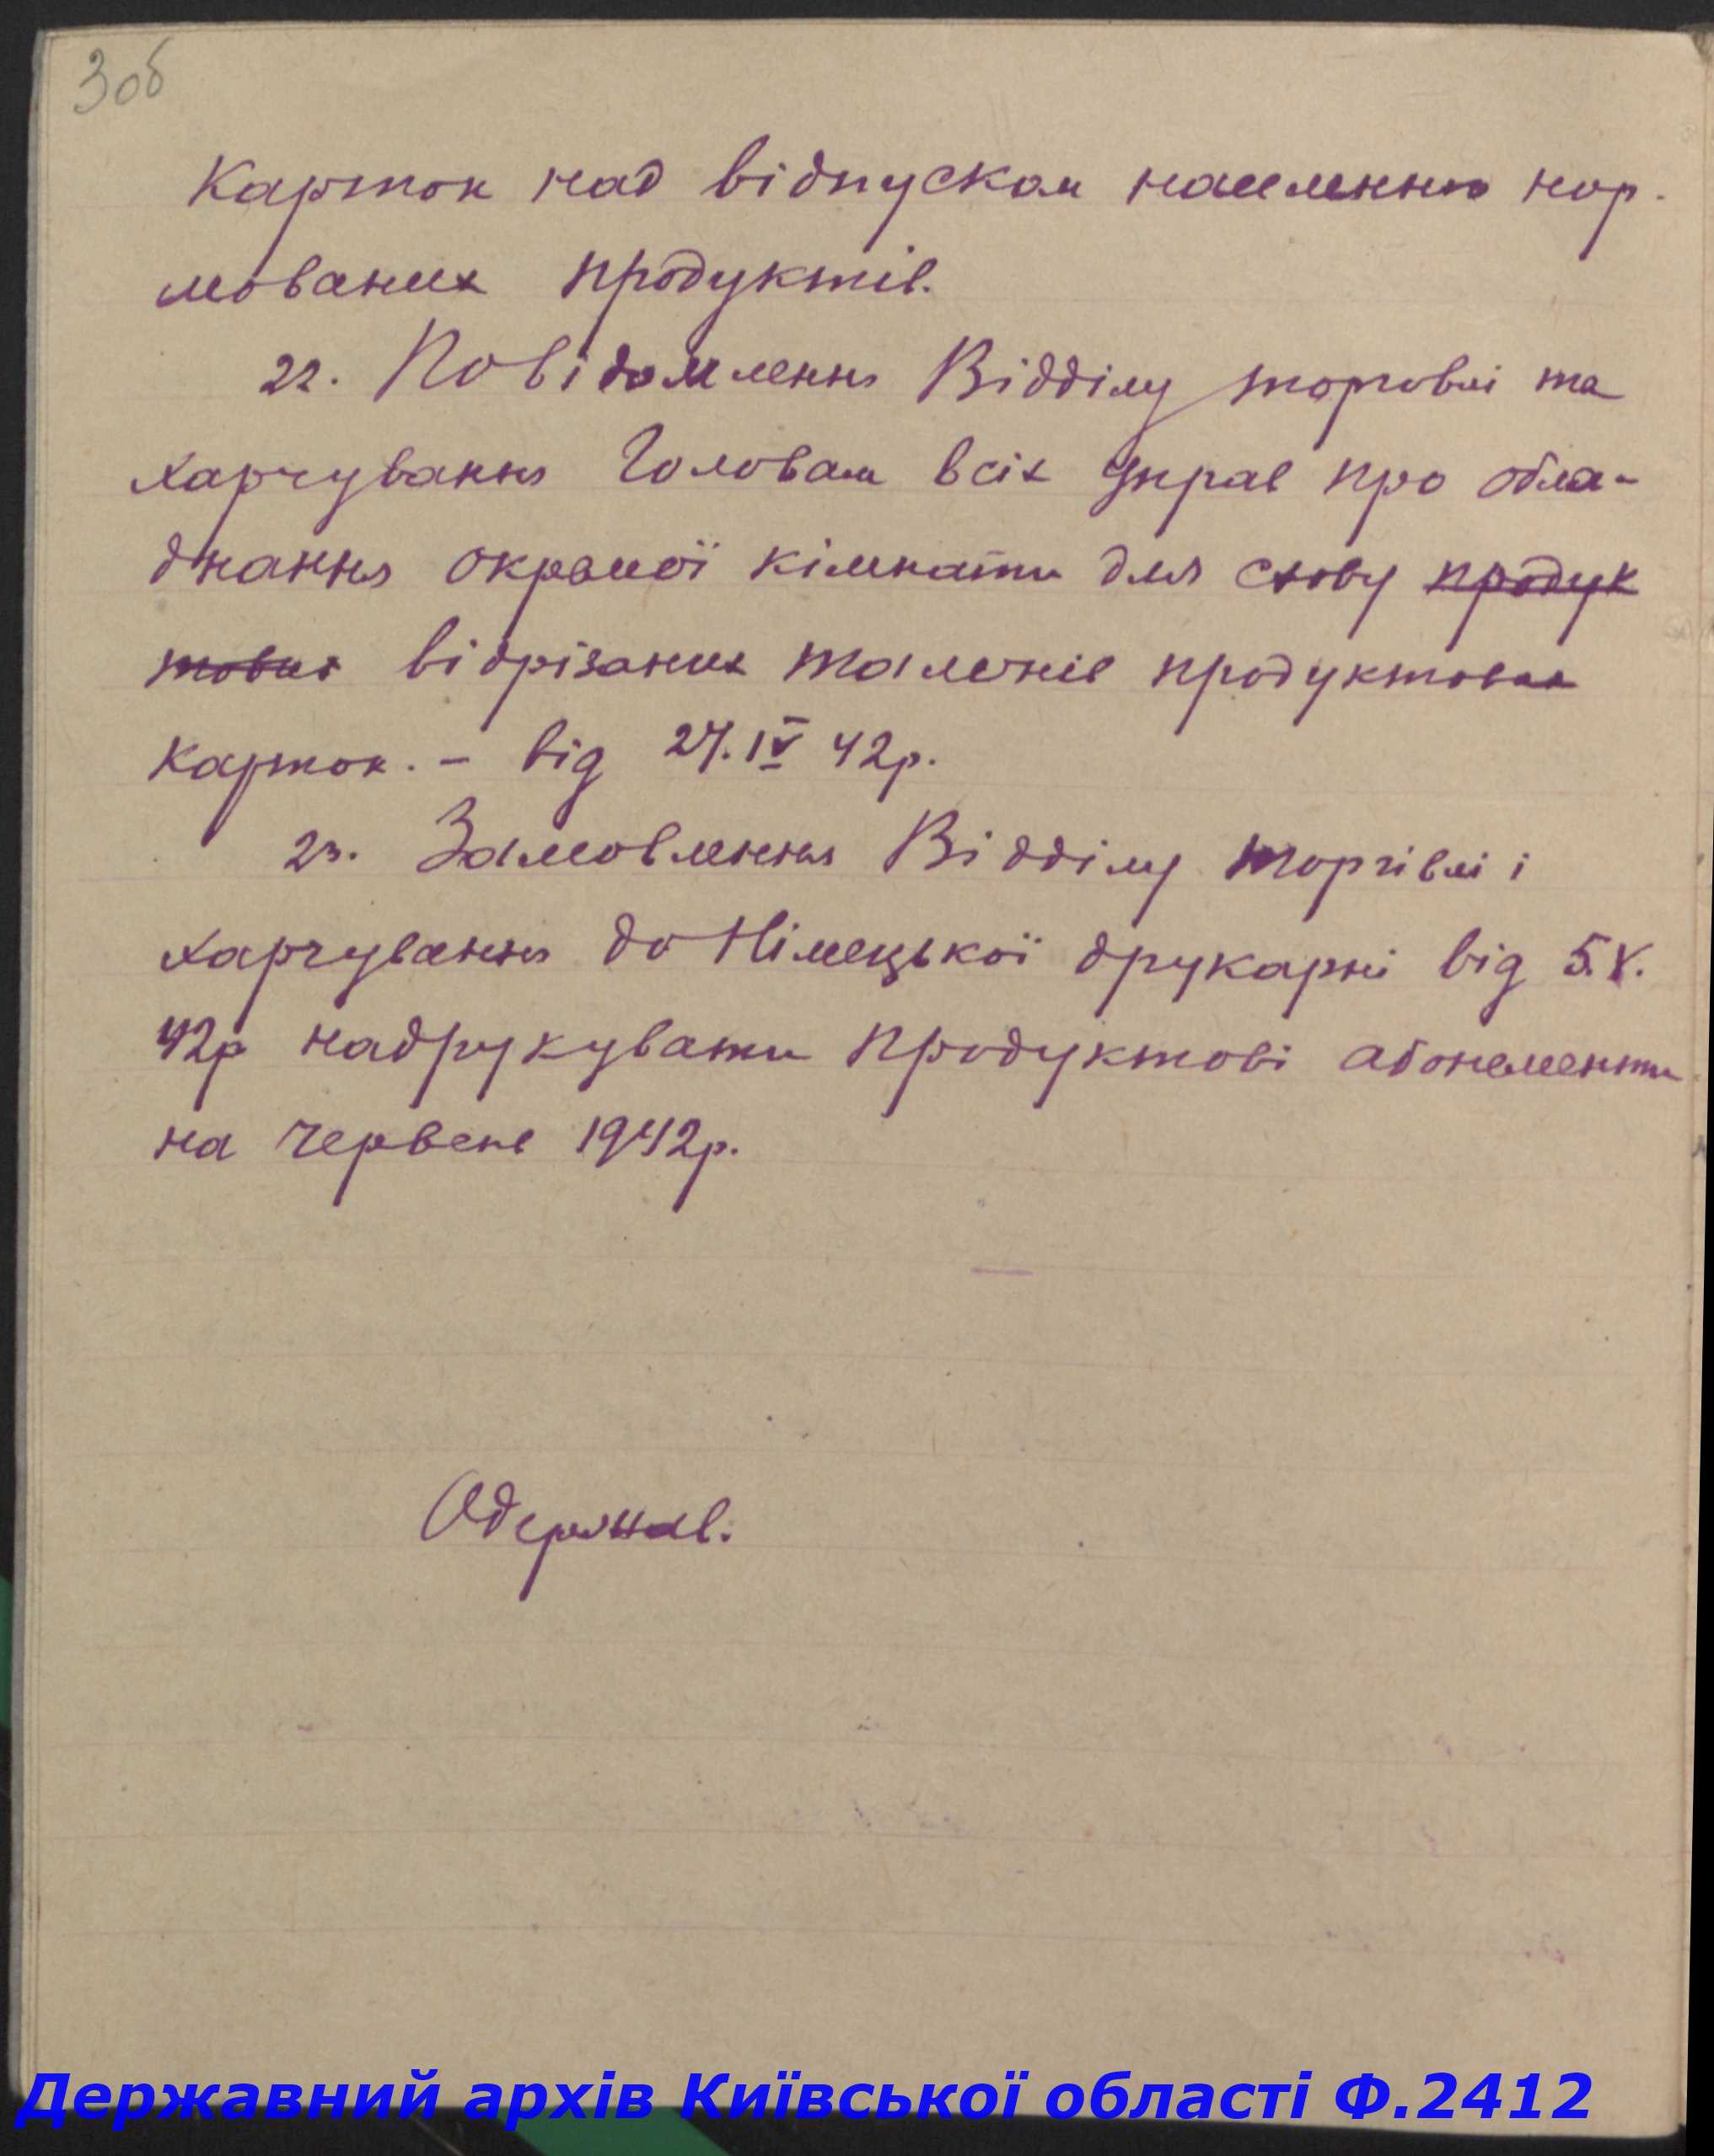 3об
карток над відпуском населенню нор-
мованих продуктів.
22. Повідомлення Відділу торговлі та
харчування Головам всіх Управ про обла-
днання окремої кімнати для схову продук
тових відрізаних талонів продуктових
карток. – від 27.IV 42р.
23. Замовлення Відділу торгівлі і
харчування до Німецької друкарні від 5.V.
42р надрукувати продуктові абонементи
на червень 1942р.
Одержав.
Державний архів Київської області Ф.2412